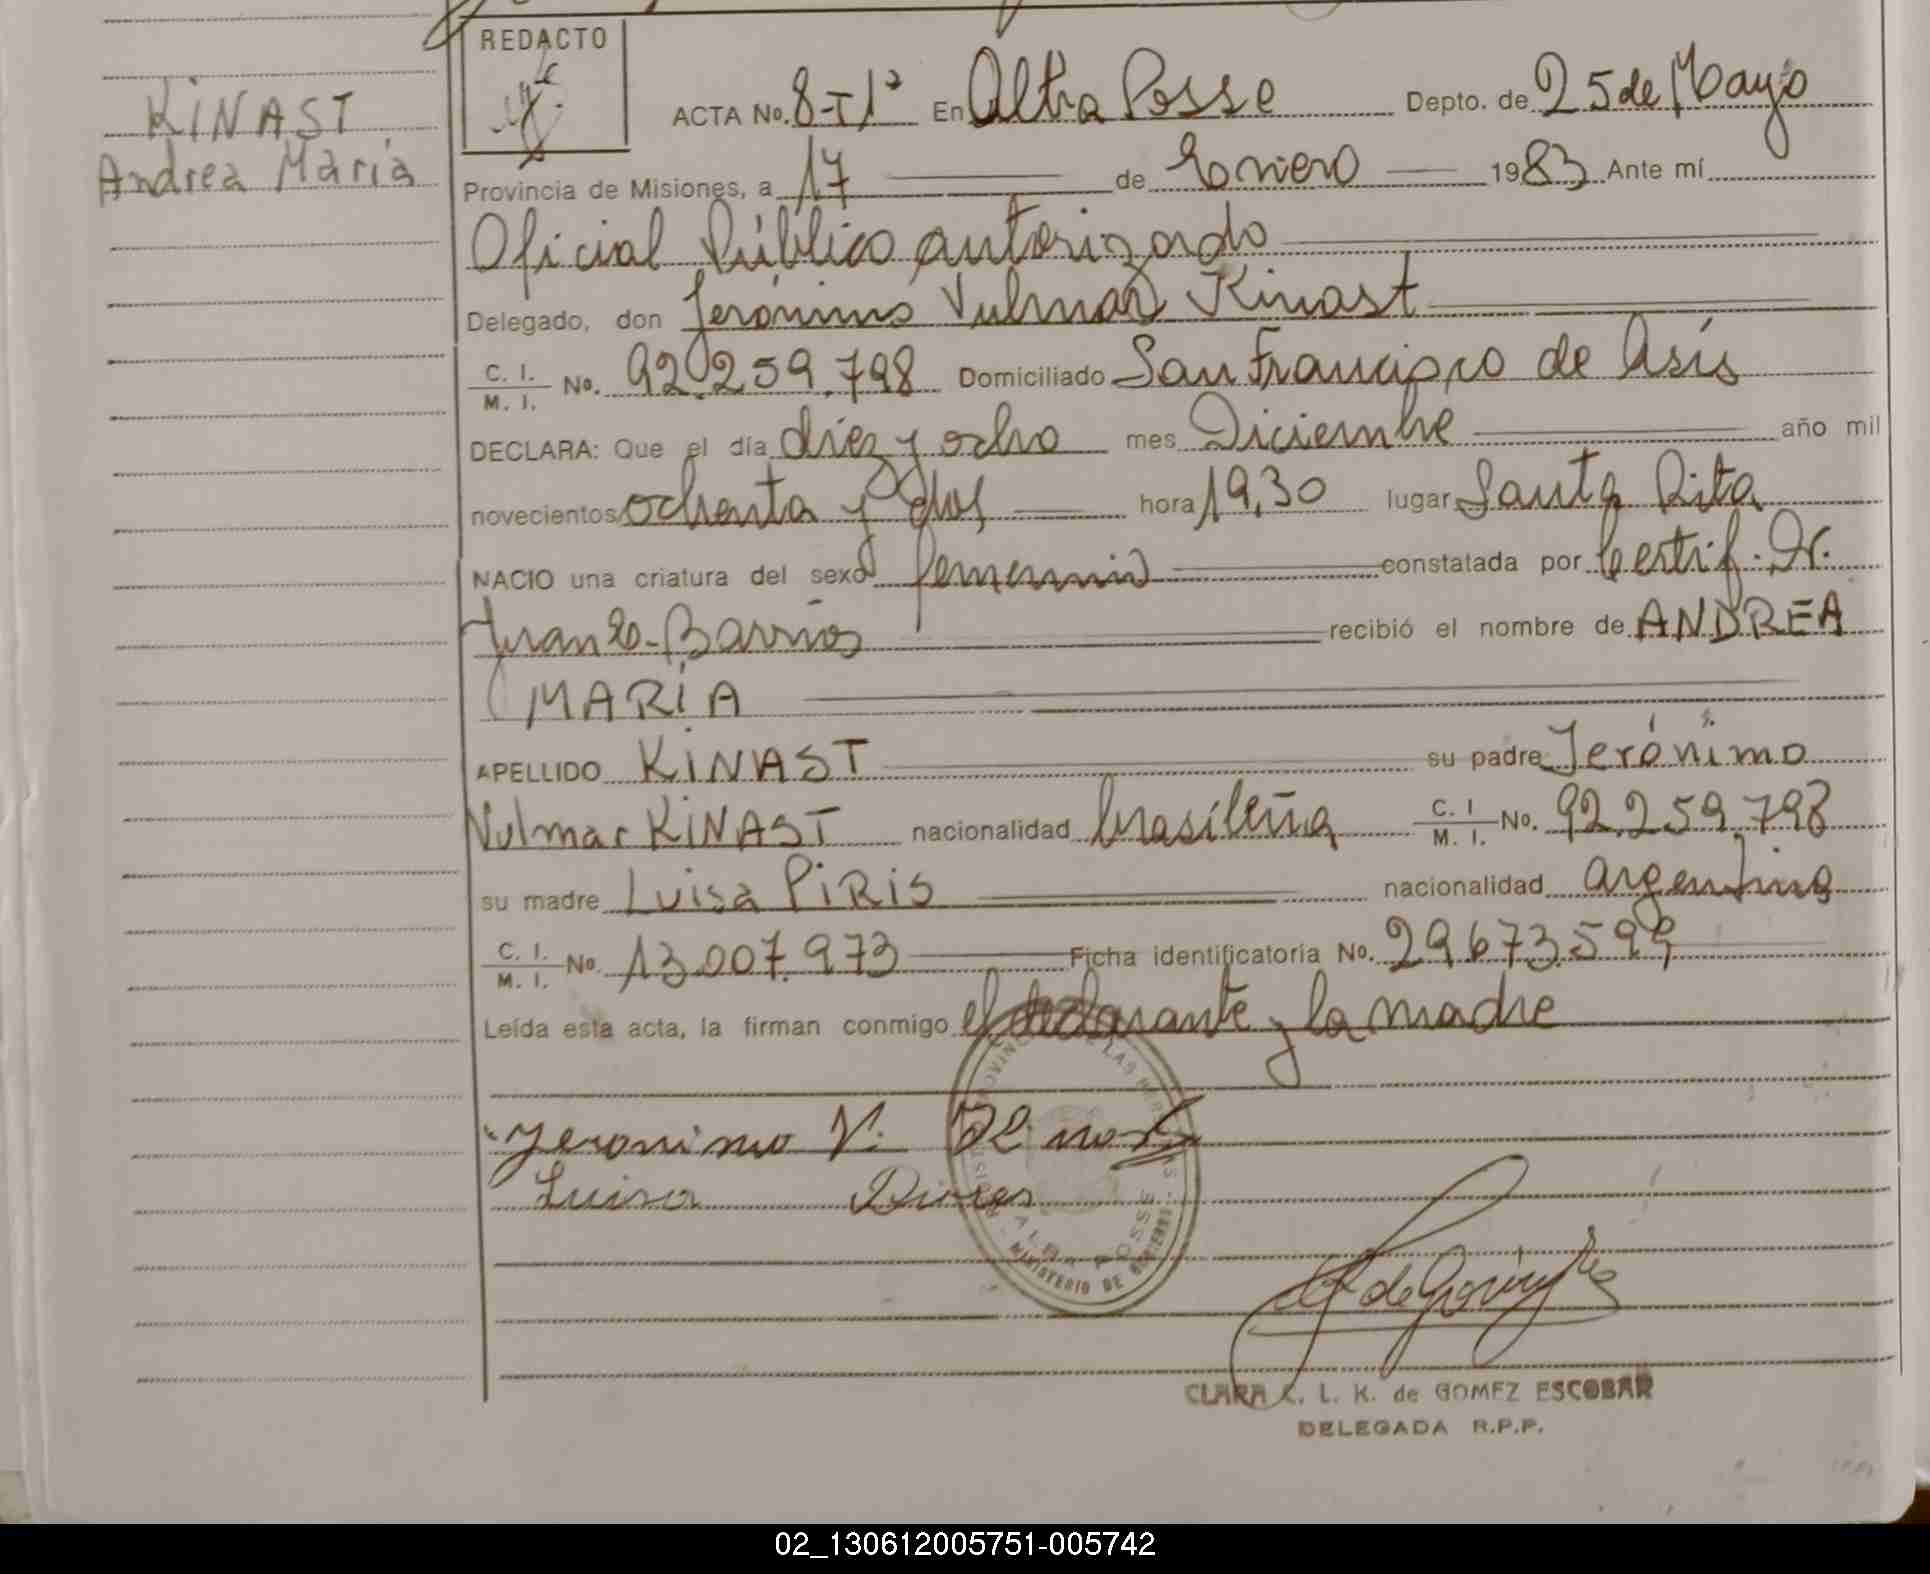 REDACTO
KINAST
Andrea María
ACTA No. 8-T1º En Alba Posse Depto. de 25 de Mayo
Provincia de Misiones, a 17 de Enero 1983 Ante mí
Oficial Público autorizado
Delegado, don Jerónimo Vulmar Kinast
C. I. M. I. No. 92.259.798 Domiciliado San Francisco de Asís
DECLARA: Que el día diez y ocho mes Diciembre año mil
novecientos ochenta y dos hora 19,30 lugar Santa Rita
NACIO una criatura del sexo femenino constatada por Certif. Dr.
Juan Barrios recibió el nombre de ANDREA
MARÍA
APELLIDO KINAST su padre Jerónimo
Vulmar KINAST nacionalidad brasileña C. I M. I. No. 92.259.798
su madre Luisa PIRIS nacionalidad argentina
C. I. M. I. No. 13.007.973 Ficha identificatoria No. 29.673.599
Leída esta acta, la firman conmigo el declarante y la madre
Jeronimo V. Kinast
Luisa Pires
ALBA POSSE
MINISTERIO DE GOBIERNO
CLARA C. L. K. de GOMEZ ESCOBAR
DELEGADA R.P.P.
02_130612005751-005742